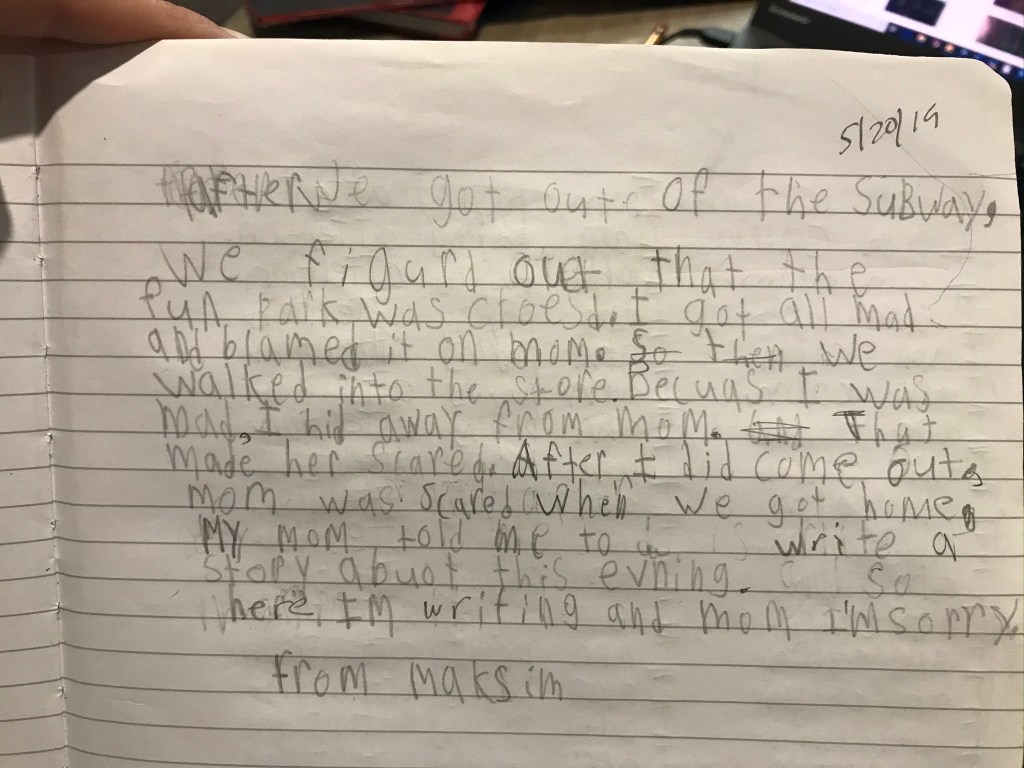 5/20/19
After We got out of the SuBway,
We figurd out that the
fun park was cloesd. I got all mad
and blamed it on mom. So then we
walked into the store. Becuas I was
mad, I hid away from mom. That
made her scared. After I did come out,
mom was scared when we got home,
My mom told me to write a
story abuot this evning. So
here Im writing and mom I'm sorry.
from maksim